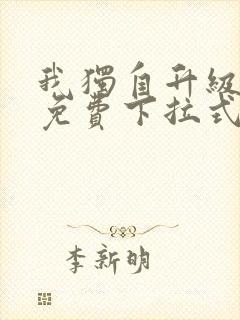 我獨自升級
免費下拉式
李新明